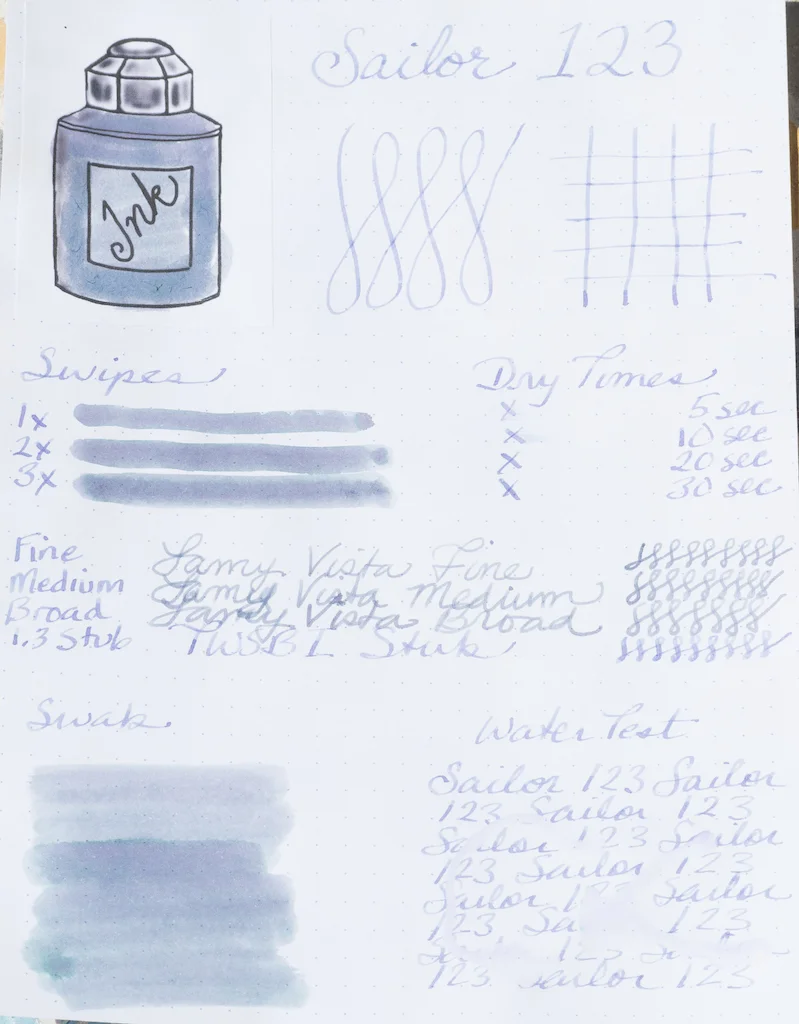 Ink
Sailor 123
Swipes
1x
2x
3x
Dry Times
x 5 sec
x 10 sec
x 20 sec
x 30 sec
Fine Lamy Vista Fine
Medium Lamy Vista Medium
Broad Lamy Vista Broad
1.3 Stub TWSBI Stub
Swab
Water Test
Sailor 123 Sailor
123 Sailor 123
Sailor 123 Sailor
123 Sailor 123
Sailor 1 Sailor
123 Sa 123
123 Sailor 123